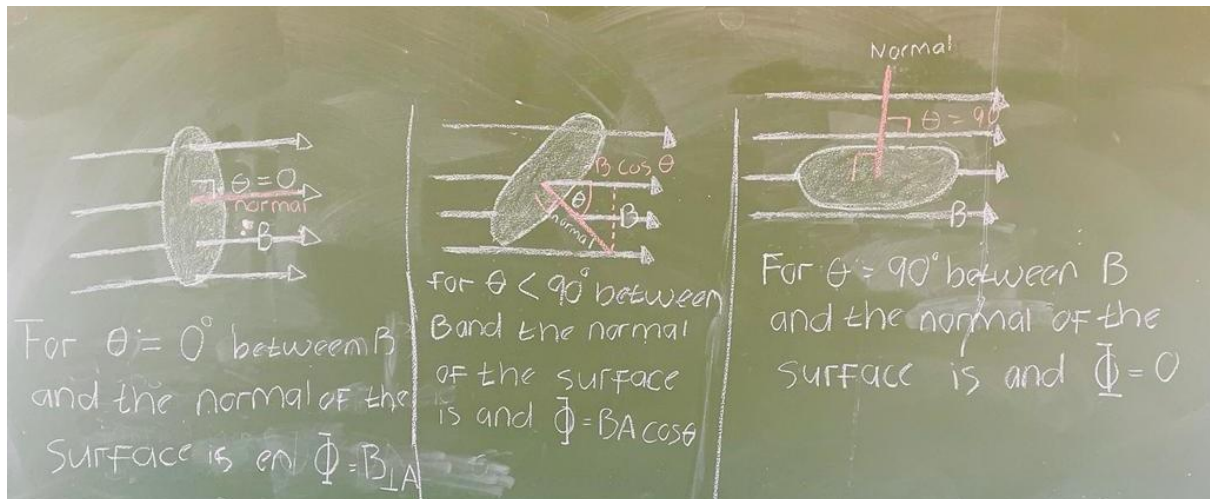 θ = 0
normal
B
For θ = 0° between B
and the normal of the
surface is en Φ = B⊥A
B cos θ
θ
B
normal
For θ < 90° between
B and the normal
of the surface
is and Φ = BA cosθ
Normal
θ = 90
B
For θ = 90° between B
and the normal of the
surface is and Φ = 0